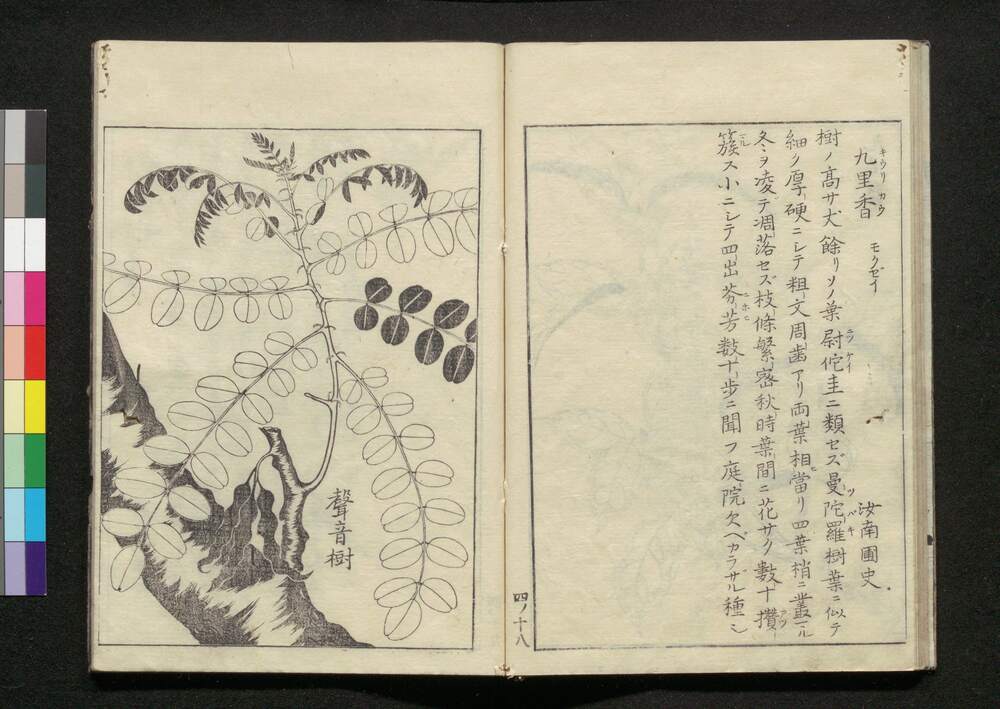 九里香 モクセイ 汝南圃史
キウリカウ
樹ノ高サ丈餘リソノ葉尉佗圭ニ類セズ曼陀羅樹葉ニ似テ
ニツケイ ツバキ
細ク厚硬ニシテ粗文周歯アリ両葉相當リ四葉梢ニ叢ル
冬ヲ凌テ凋落セズ枝條繁密秋時葉間ニ花サク数十攢
簇ス小ニシテ四出芬芳数十歩ニ聞フ庭院欠ベカラザル種
ニホヒ
四ノ十八
聲音樹